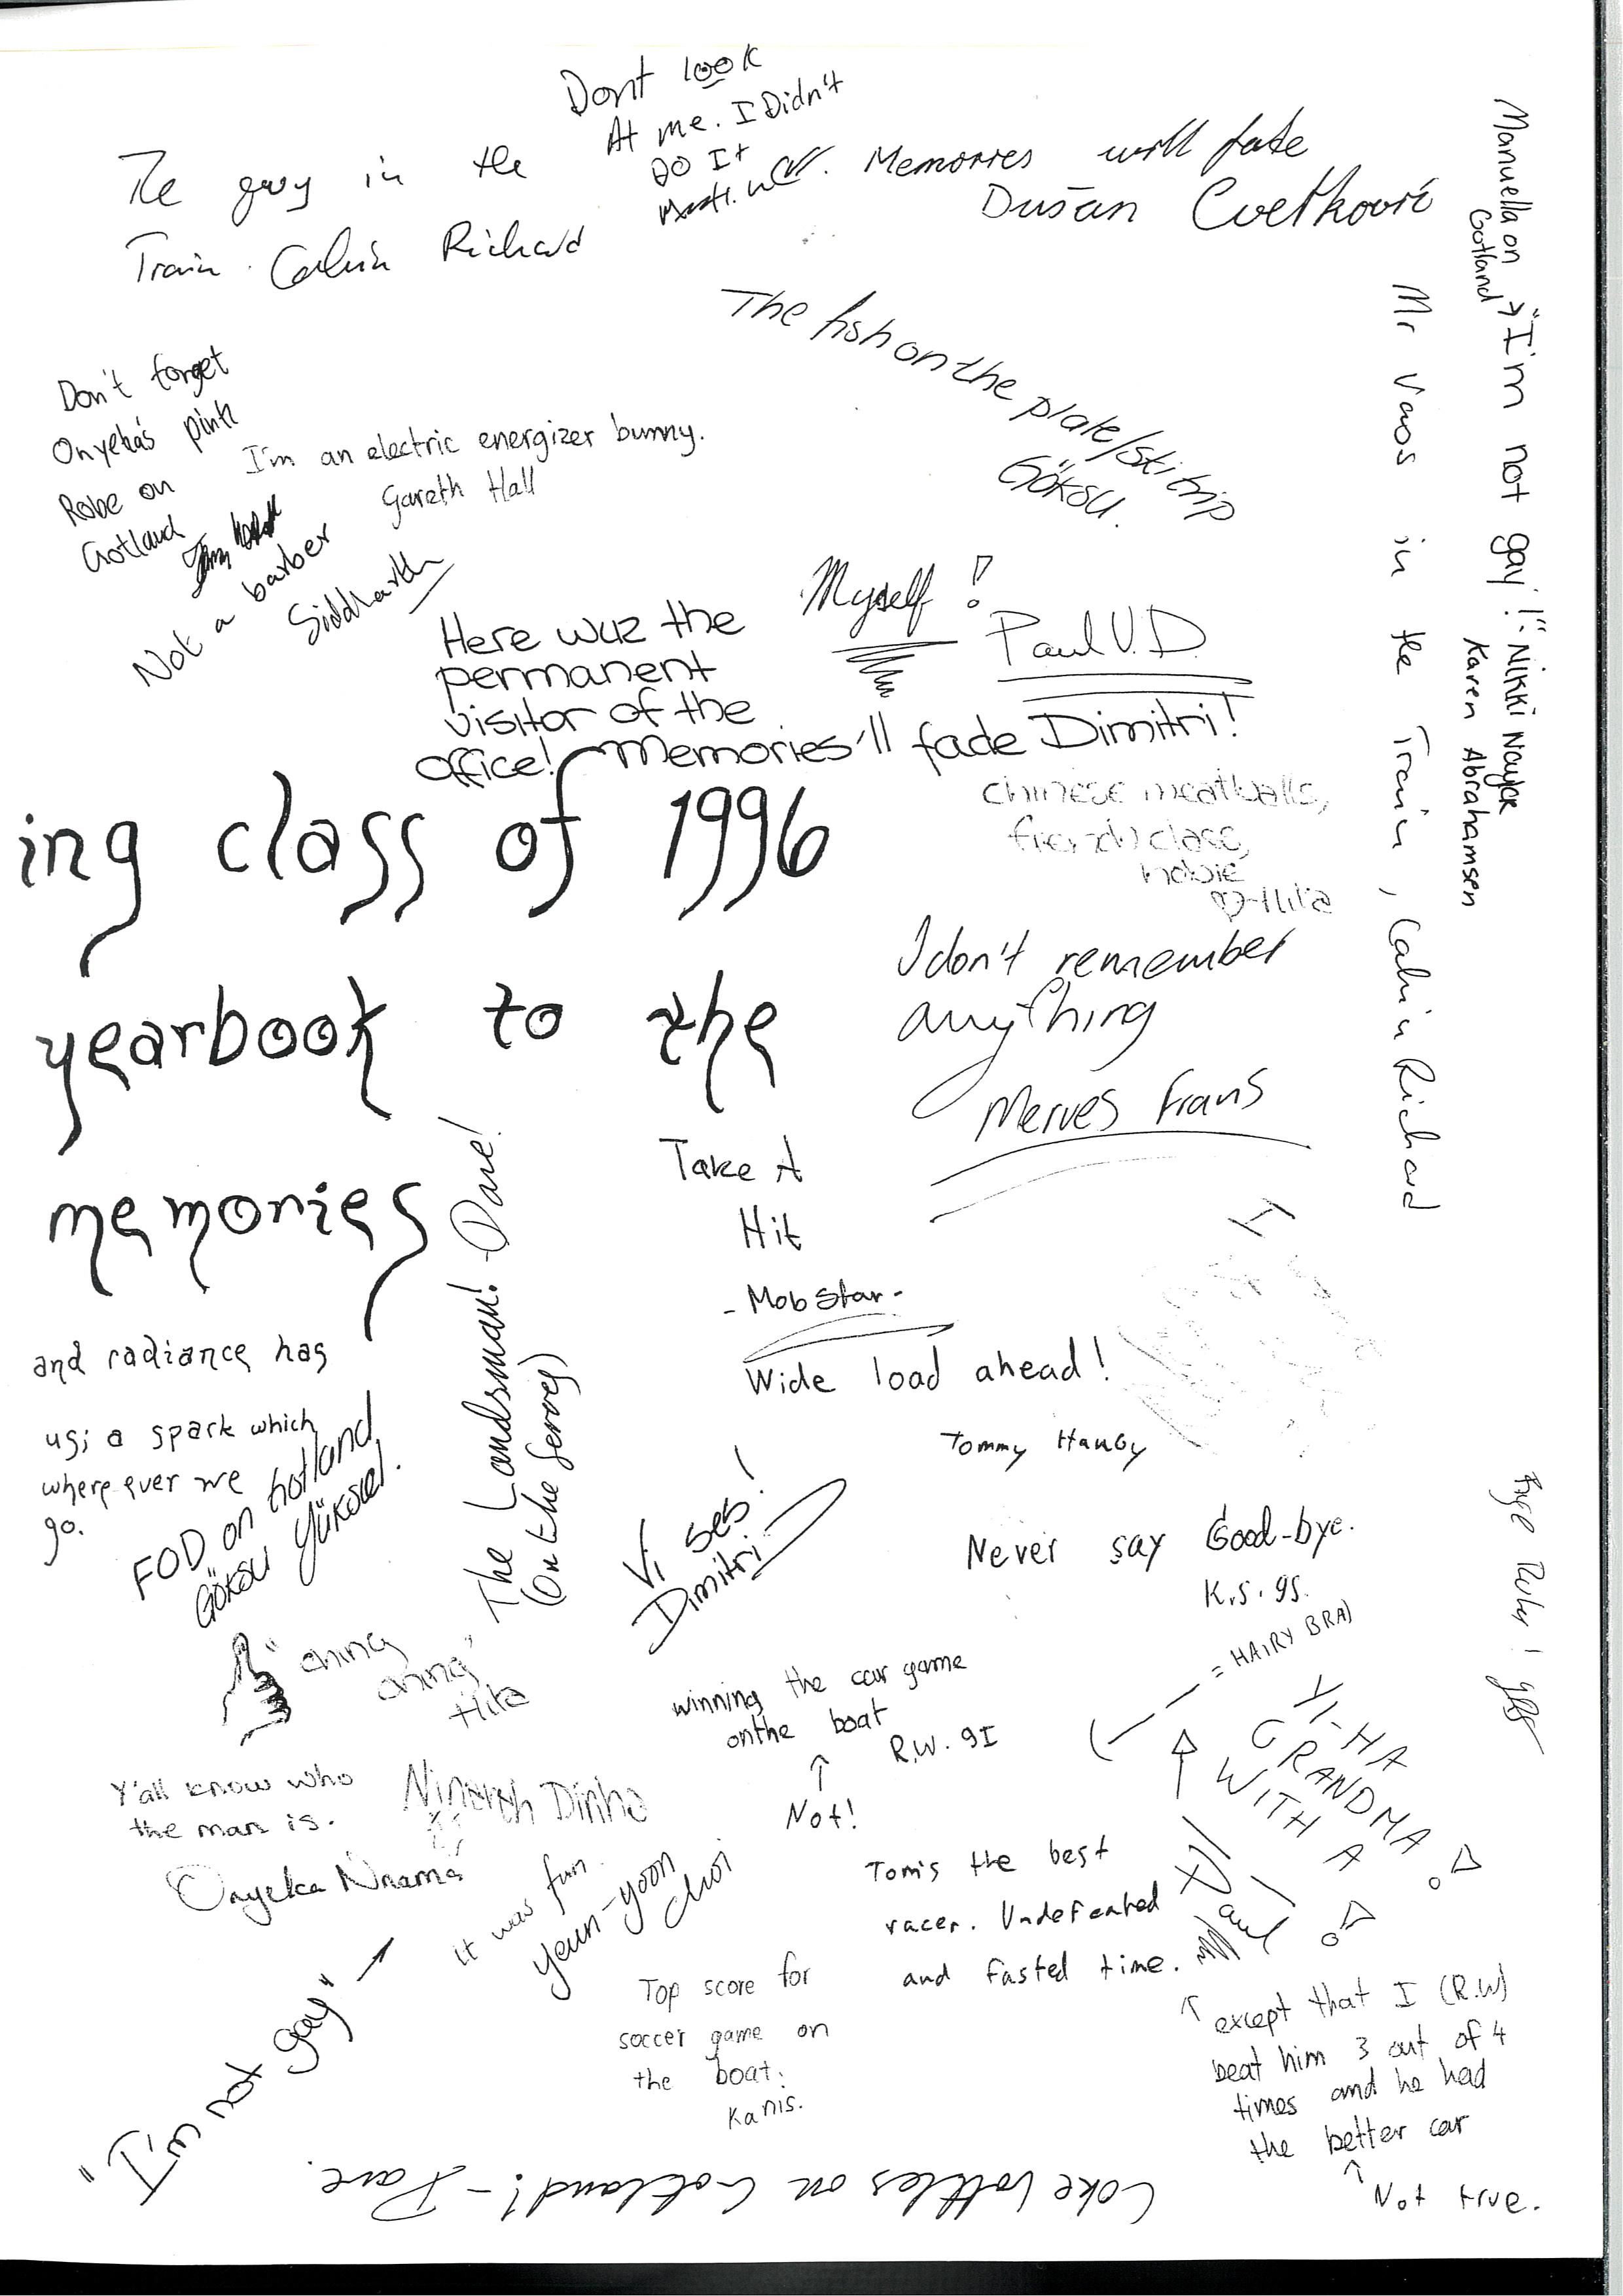 Dont look
At me. I Didn't
Do It
The guy in the
Train. Calvin Richard
Memories will fate
Dušan Cvetković
Manuella on
Gotland → "I'm not gay!!" Nikki Nayck
Karen Abrahamsen
Mr Vaos in the Train, Calvin Richard
The fish on the plate/ski trip
GÖKSU.
Don't forget
Onyeka's pink
Robe on
Gotland
I'm an electric energizer bunny.
Gareth Hall
Not a barber
Siddharth
Myself!
Paul V.D.
Here wuz the
permanent
visitor of the
office! Memories'll fade Dimitri!
ing class of 1996
chinese meatballs,
french class,
Hita
yearbook to the
I don't remember
anything
Merves Frans
memories
Take it
Hit
- Mob Star -
The Landsman! - Dave!
(on the ferry)
and radiance has
us; a spark which
where ever we
go.
Wide load ahead!
Tommy
FOD on Gotland
Göksu Yüksel.
Vi ses!
Dimitri
Never say Good-bye.
K.S. 9S.
Bye Ruby!
"ching
ching"
Hita
winning the car game
on the boat
R.W. 9I
↑
Not!
= HAIRY BRA)
YI-HA
GRANDMA!
WITH A !
Paul
Y'all know who
the man is.
Onyeka Nnama
Ninorah Dinha
it was fun.
yeun-yoon
choi
Tom's the best
racer. Undefeated
and fasted time.
↑ except that I (R.W)
beat him 3 out of 4
times and he had
the better car
↑
Not true.
Top score for
soccer game on
the boat.
Kanis.
"I'm not gay" →
Coke bottles on Gotland! - Dave.